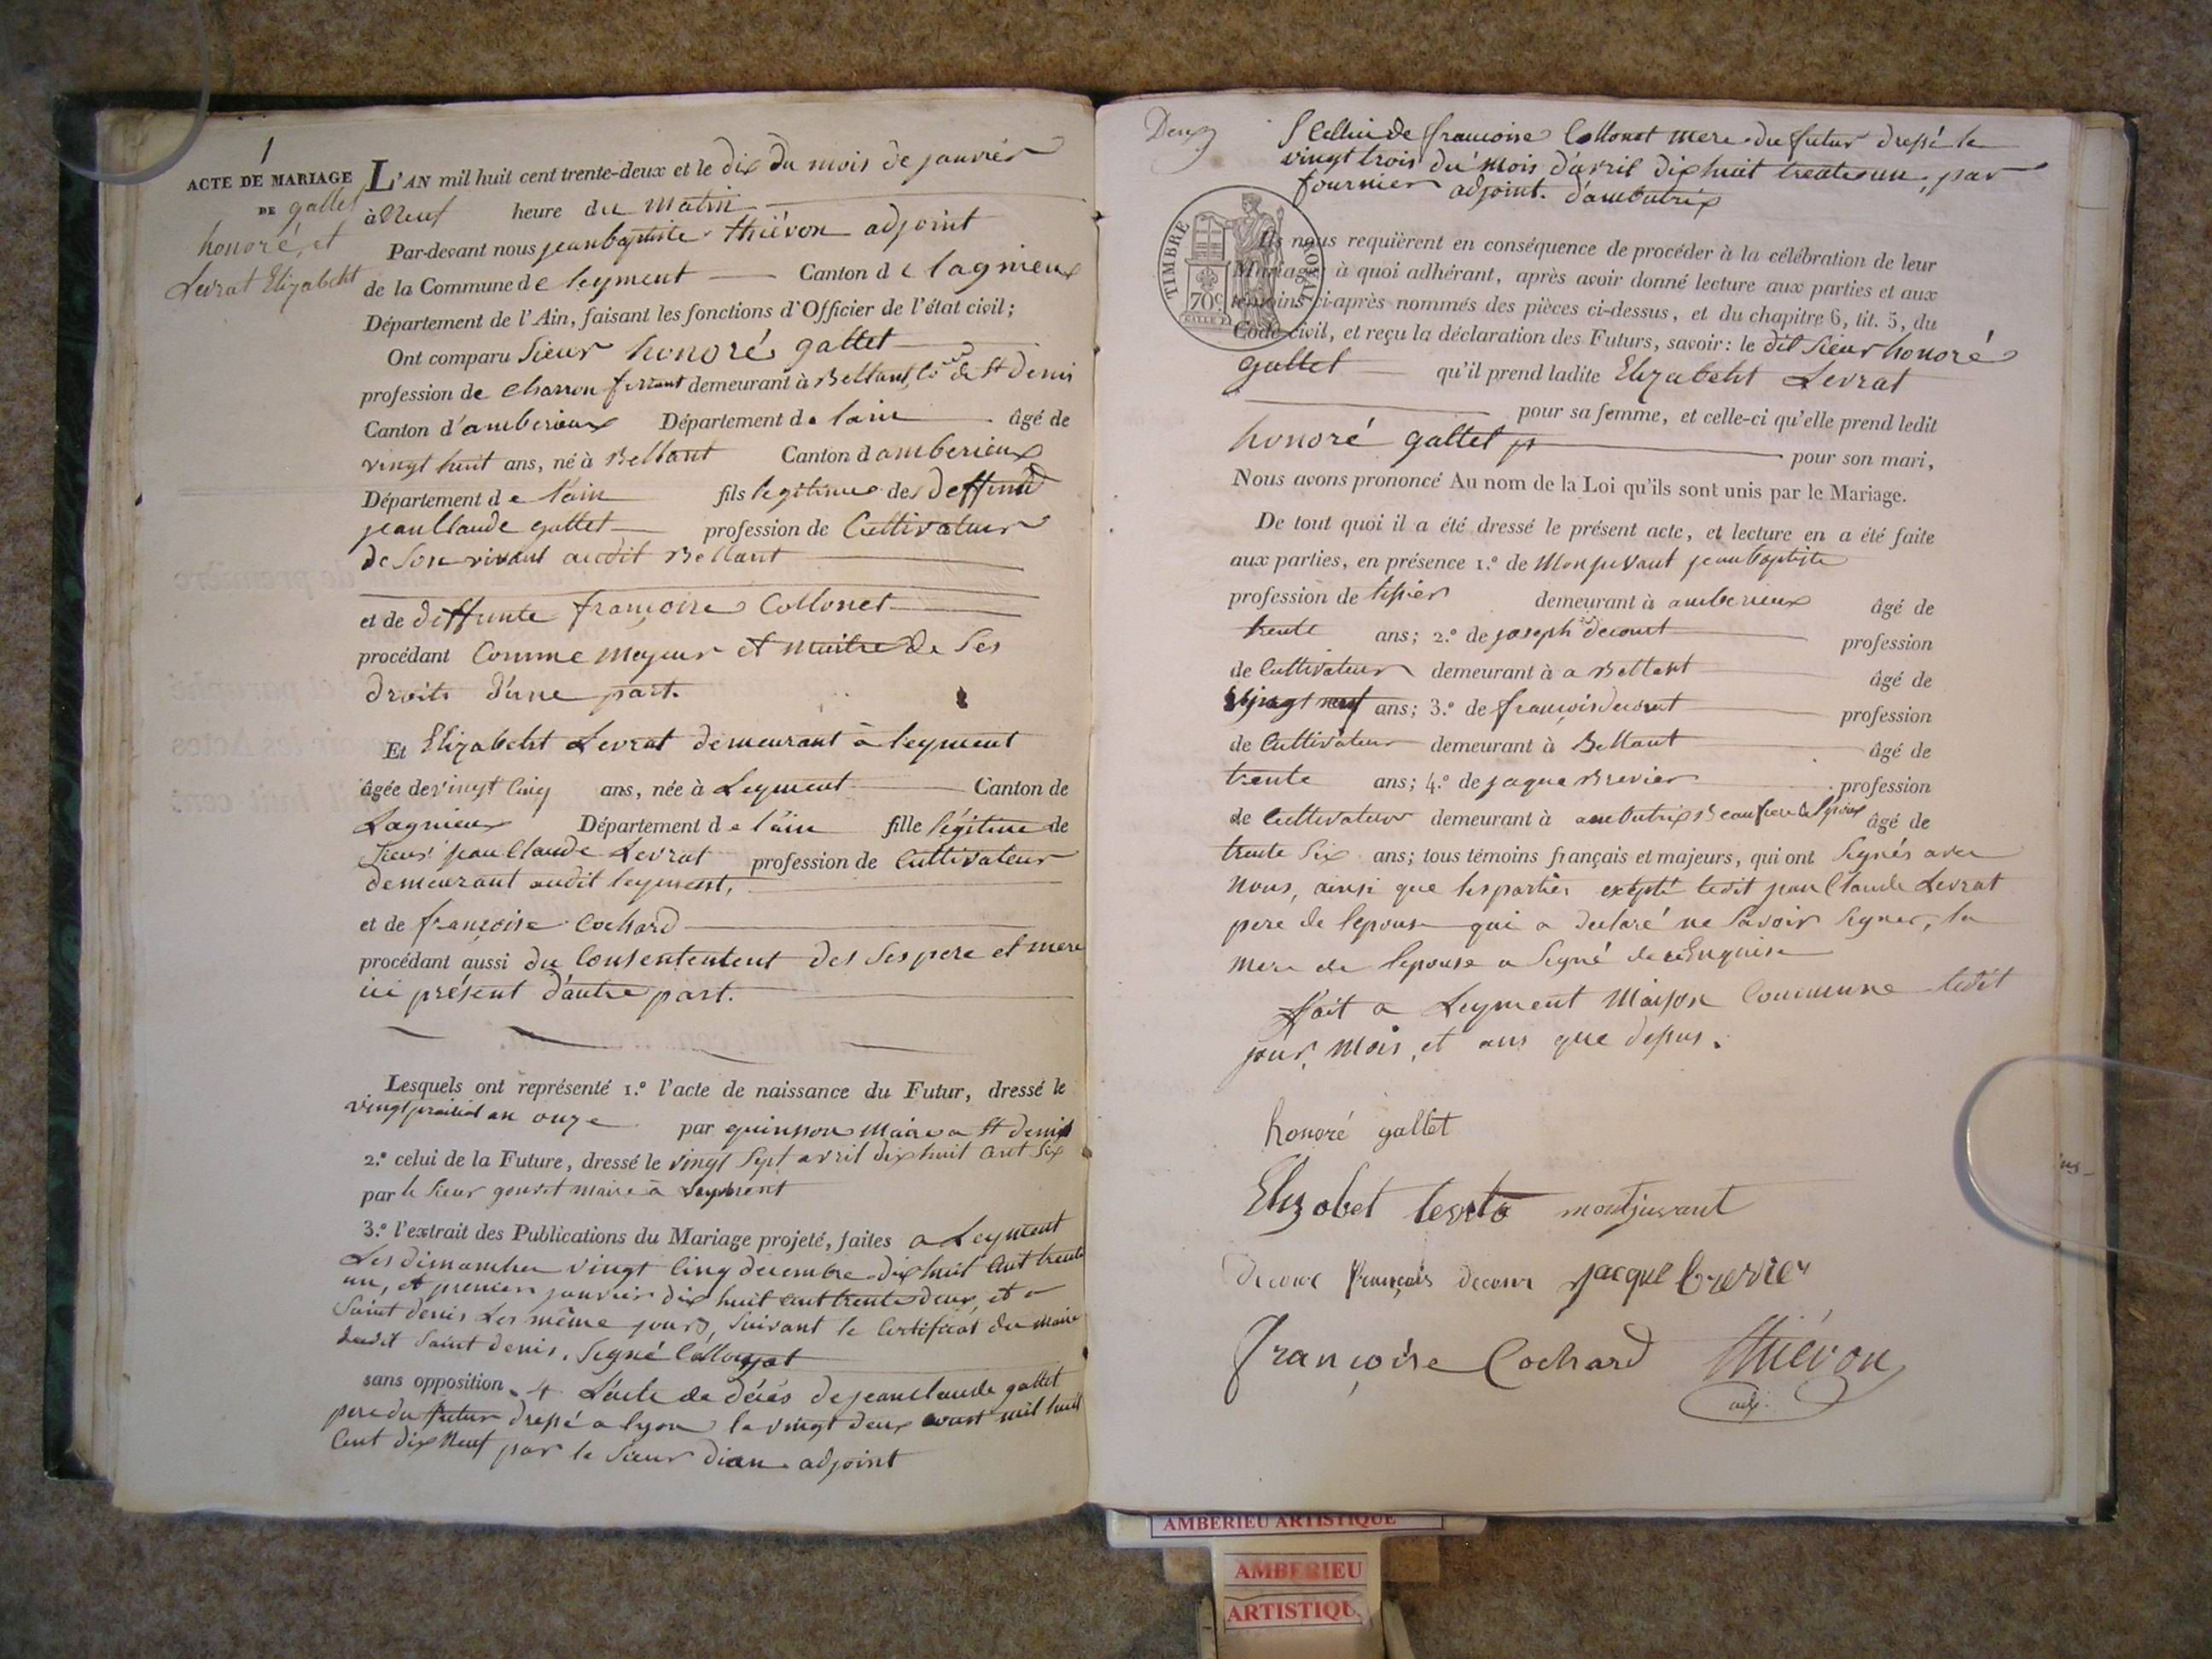 1
ACTE DE MARIAGE
DE gallet
honoré, et
Levrat Elizabeht
L'AN mil huit cent trente-deux et le dix du mois de janvier
à Neuf heure du matin
Par-devant nous jean baptiste thiévon adjoint
de la Commune de leyment Canton de lagnieux
Département de l'Ain, faisant les fonctions d'Officier de l'état civil;
Ont comparu Sieur honoré gallet
profession de charron ferrant demeurant à Bettant, Co de St denis
Canton d'amberieux Département de lain âgé de
vingt huit ans, né à Bettant Canton d amberieux
Département de l'ain fils legitime des deffund
jean Claude gallet profession de Cultivateur
de son vivant audit Bettant
et de deffunte françoise Collonet
procédant Comme majeur et maitre de Ses
droits d'une part.
Et Elizabeht Levrat demeurant à leyment
âgée de vingt Cinq ans, née à Leyment Canton de
Lagnieux Département de l'ain fille légitime de
Sieur jean Claude Levrat profession de Cultivateur
demeurant audit leyment,
et de françoise Cochard
procédant aussi du Consententent des Ses pere et mere
ici présent d'autre part.
Lesquels ont représenté 1.º l'acte de naissance du Futur, dressé le
vingt prairial an onze par quinson Maire a St denis
2.º celui de la Future, dressé le vingt Sept avril dix huit Cent Six
par le Sieur gouvet maire à Leyment
3.º l'extrait des Publications du Mariage projeté, faites a Leyment
Les dimanches vingt Cinq decembre dix huit Cent trente
un, et premier janvier dix huit cent trente deux, et a
Saint denis Les même jours, Suivant le Certificat du Maire
dudit Saint denis. Signé
sans opposition. 4 L'acte de décés de jean Claude gallet
pere du futur dressé a lyon le vingt deux aoust mil huit
Cent dix Neuf par le Sieur dian adjoint
Deux
5 Cellui de françoise Collonet mere du futur dressé le
vingt trois du mois d'avril dix huit trente un, par
fournier adjoint. d'ambutrix
TIMBRE ROYAL
70c
Ils nous requièrent en conséquence de procéder à la célébration de leur
Mariage à quoi adhérant, après avoir donné lecture aux parties et aux
témoins ci-après nommés des pièces ci-dessus, et du chapitre 6, tit. 5, du
Code civil, et reçu la déclaration des Futurs, savoir: le dit Sieur honoré
gallet qu'il prend ladite Elizabeht Levrat
pour sa femme, et celle-ci qu'elle prend ledit
honoré gallet pour son mari,
Nous avons prononcé Au nom de la Loi qu'ils sont unis par le Mariage.
De tout quoi il a été dressé le présent acte, et lecture en a été faite
aux parties, en présence 1.º de Monjuvant jean baptiste
profession de tissier demeurant à amberieux âgé de
trente ans; 2.º de joseph decourt profession
de Cultivateur demeurant à a Bettant âgé de
vingt neuf ans; 3.º de françois decourt profession
de Cultivateur demeurant à Bettant âgé de
trente ans; 4.º de jaque Brevier profession
de Cultivateur demeurant à ambutrix Beau frere de l'époux âgé de
trente Six ans; tous témoins français et majeurs, qui ont Signés avec
nous, ainsi que les parties excépté ledit jean Claude Levrat
pere de lepouse qui a declaré ne Savoir Signer, la
mere de lepouse a Signé de ce Enquise
ffait a Leyment Maison Commune ledit
jour, mois, et ans que depus.
honoré gallet
Elizobet levrta montjuvant
Decour françois decour jacque brevier
françoise Cochard thiévon
adj.
AMBERIEU ARTISTIQUE
AMBERIEU
ARTISTIQU